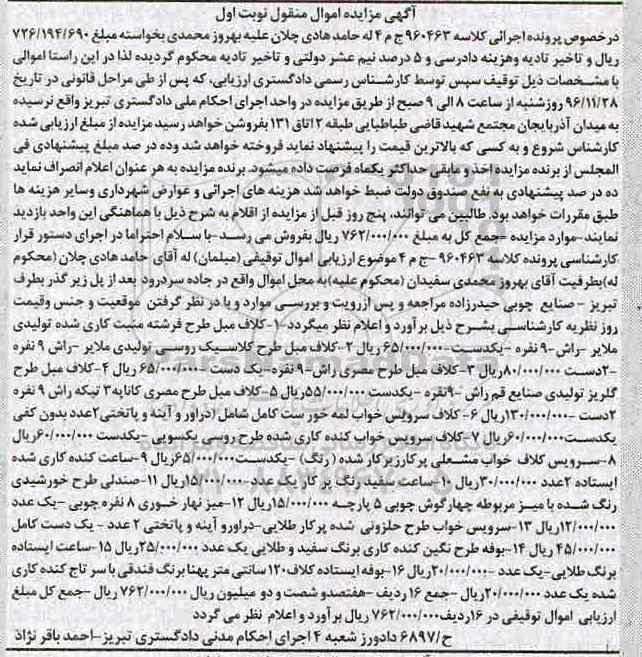 آگهی مزایده اموال منقول نوبت اول
درخصوص پرونده اجرائی کلاسه ۹۶۰۴۶۳ج م ۴ له حامد هادی چلان علیه بهروز محمدی بخواسته مبلغ ۷۲۶/۱۹۴/۶۹۰
ریال و تاخیر تادیه وهزینه دادرسی و ۵ درصد نیم عشر دولتی و تاخیر تادیه محکوم گردیده لذا در این راستا اموالی
با مشخصات ذیل توقیف سپس توسط کارشناس رسمی دادگستری ارزیابی، که پس از طی مراحل قانونی در تاریخ
۹۶/۱۱/۲۸ روزشنبه از ساعت ۸ الی ۹ صبح از طریق مزایده در واحد اجرای احکام ملی دادگستری تبریز واقع نرسیده
به میدان آذربایجان مجتمع شهید قاضی طباطبایی طبقه ۲ اتاق ۱۳۱ بفروشن خواهد رسید مزایده از مبلغ ارزیابی شده
کارشناس شروع و به کسی که بالاترین قیمت را پیشنهاد نماید فروخته خواهد شد وده در صد مبلغ پیشنهادی فی
المجلس از برنده مزایده اخذ و مابقی حداکثر یکماه فرصت داده میشود. برنده مزایده به هر عنوان اعلام انصراف نماید
ده در صد پیشنهادی به نفع صندوق دولت ضبط خواهد شد هزینه های اجرائی و عوارض شهرداری وسایر هزینه ها
طبق مقررات خواهد بود. طالبین می توانند، پنج روز قبل از مزایده از اقلام به شرح ذیل با هماهنگی این واحد بازدید
نمایند-موارد مزایده -جمع کل به مبلغ ۷۶۲/۰۰۰/۰۰۰ ریال بفروش می رسد-با سلام احتراما در اجرای دستور قرار
کارشناسی پرونده کلاسه ۹۶۰۴۶۳ -ج م ۴ موضوع ارزیابی اموال توقیفی (مبلمان) له آقای حامد هادی چلان (محکوم
له)بطرفیت آقای بهروز محمدی سفیدان (محکوم علیه)به محل اموال واقع در جاده سردرود بعد از پل زیر گذر بطرف
تبریز - صنایع چوبی حیدرزاده مراجعه و پس ازرویت و بررسی موارد و با در نظر گرفتن موقعیت و جنس وقیمت
روز نظریه کارشناسی بشرح ذیل برآورد و اعلام نظر میگردد-۱-کلاف مبل طرح فرشته منبت کاری شده تولیدی
ملایر -راش-۹ نفره -یکدست-۶۵/۰۰۰/۰۰۰ ریال ۲-کلاف مبل طرح کلاسیک روسی تولیدی ملایر -راش ۹ نفره
-۲دست ۸۰/۰۰۰/۰۰۰ریال ۳-کلاف مبل طرح مصری راش-۹ نفره-یک دست -۶۵/۰۰۰/۰۰۰ ریال ۴-کلاف مبل طرح
گلریز تولیدی صنایع قم راش -۹نفره -یکدست ۵۵/۰۰۰/۰۰۰ریال ۵-کلاف مبل طرح مصری کاناپه۳ تیکه راش ۹ نفره
۲دست -۱۳۰/۰۰۰/۰۰۰ریال ۶-کلاف سرویس خواب لمه خور ست کامل شامل (دراور و آینه و پاتختی۲عدد بدون کفی
یکدست-۶۰/۰۰۰/۰۰۰ریال ۷-کلاف سرویس خواب کنده کاری شده طرح روسی یکسویی -یکدست ۶۰/۰۰۰/۰۰۰ریال
۸-سرویس کلاف خواب مشعلی پرکارزیرکار شده (رنگ) -یکدست-۶۵/۰۰۰/۰۰۰ریال ۹-ساعت کنده کاری شده
ایستاده ۲عدد ۳۰/۰۰۰/۰۰۰ریال ۱۰-ساعت سفید رنگ پر کار یک عدد-۱۵/۰۰۰/۰۰۰ریال ۱۱-صندلی طرح خورشیدی
رنگ شده با میز مربوطه چهارگوش چوبی ۵ پارچه ۱۵/۰۰۰/۰۰۰ریال ۱۲-میز نهار خوری ۸ نفره چوبی -یک عدد
۱۲/۰۰۰/۰۰۰ریال ۱۳-سرویس خواب طرح حلزونی شده پرکار طلایی-دراورو آینه و پاتختی ۲ عدد - یک دست کامل
۴۵/۰۰۰/۰۰۰ ریال ۱۴-بوفه طرح نگین کنده کاری برنگ سفید و طلایی یک عدد ۲۵/۰۰۰/۰۰۰ریال ۱۵-ساعت ایستاده
برنگ طلایی-یک عدد -۲۰/۰۰۰/۰۰۰ریال ۱۶-بوفه ایستاده کلاف۱۲۰ سانتی متر پهنا برنگ فندقی با سر تاج کنده کاری
شده یک عدد ۲۰/۰۰۰/۰۰۰ریال -جمع ۱۶ ردیف -هفتصدو شصت و دو میلیون ریال ۷۶۲/۰۰۰/۰۰۰ ریال -جمع کل مبلغ
ارزیابی اموال توقیفی در ۱۶ردیف۷۶۲/۰۰۰/۰۰۰ ریال برآورد و اعلام نظر می گردد
ح/۶۸۹۷ دادورز شعبه ۴ اجرای احکام مدنی دادگستری تبریز-احمد باقر نژاد